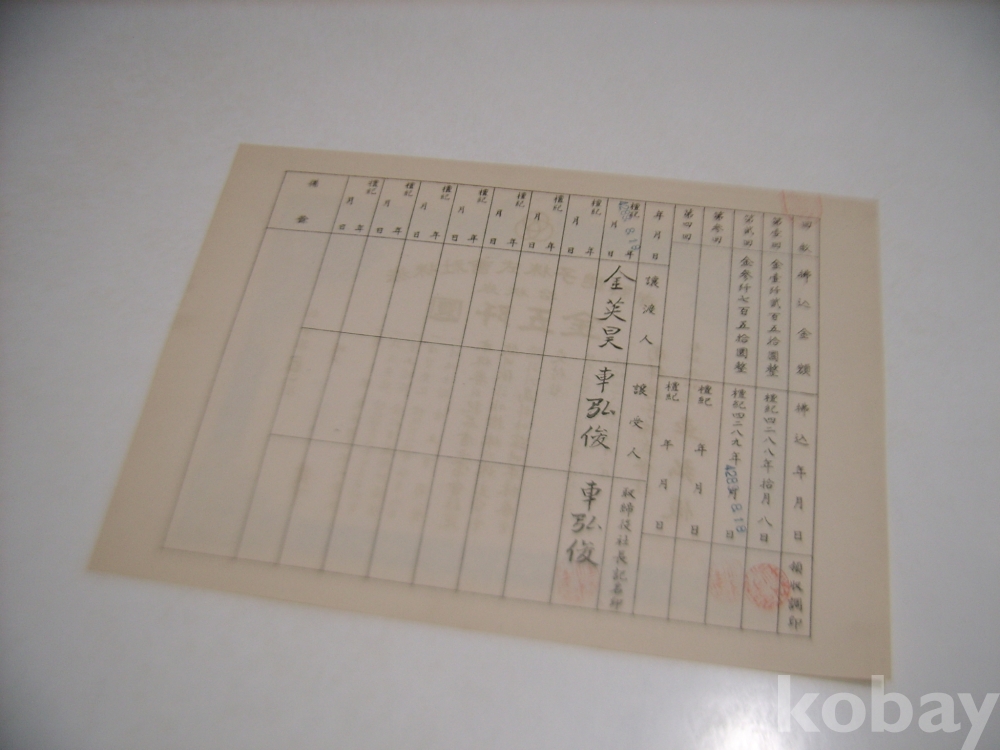 回數 拂込金額 拂込年月日 領收調印
第壹回 金壹仟貳百五拾圜整 檀紀四二八八年拾月八日
第貳回 金參仟七百五拾圜整 檀紀四二八九年 月 日 4289 8.18
第參回 檀紀 年 月 日
第四回 檀紀 年 月 日
年月日 讓渡人 讓受人 取締役社長記名印
檀紀 年 月 日 8.18 金英昊 車弘俊 車弘俊
檀紀 年 月 日
檀紀 年 月 日
檀紀 年 月 日
檀紀 年 月 日
檀紀 年 月 日
檀紀 年 月 日
檀紀 年 月 日
kobay